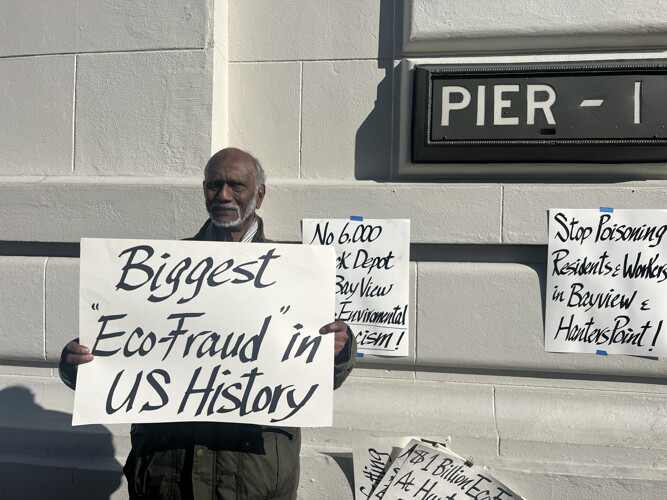 PIER - 1
Biggest
"Eco-Fraud" in
US History
No 6,000
ck Depot
Bay View
Enviromental
cism!
Stop Poisoning
Residents & Workers
in Bayview &
Hunters Point!
$1 Billion Eco-F
At Hunt